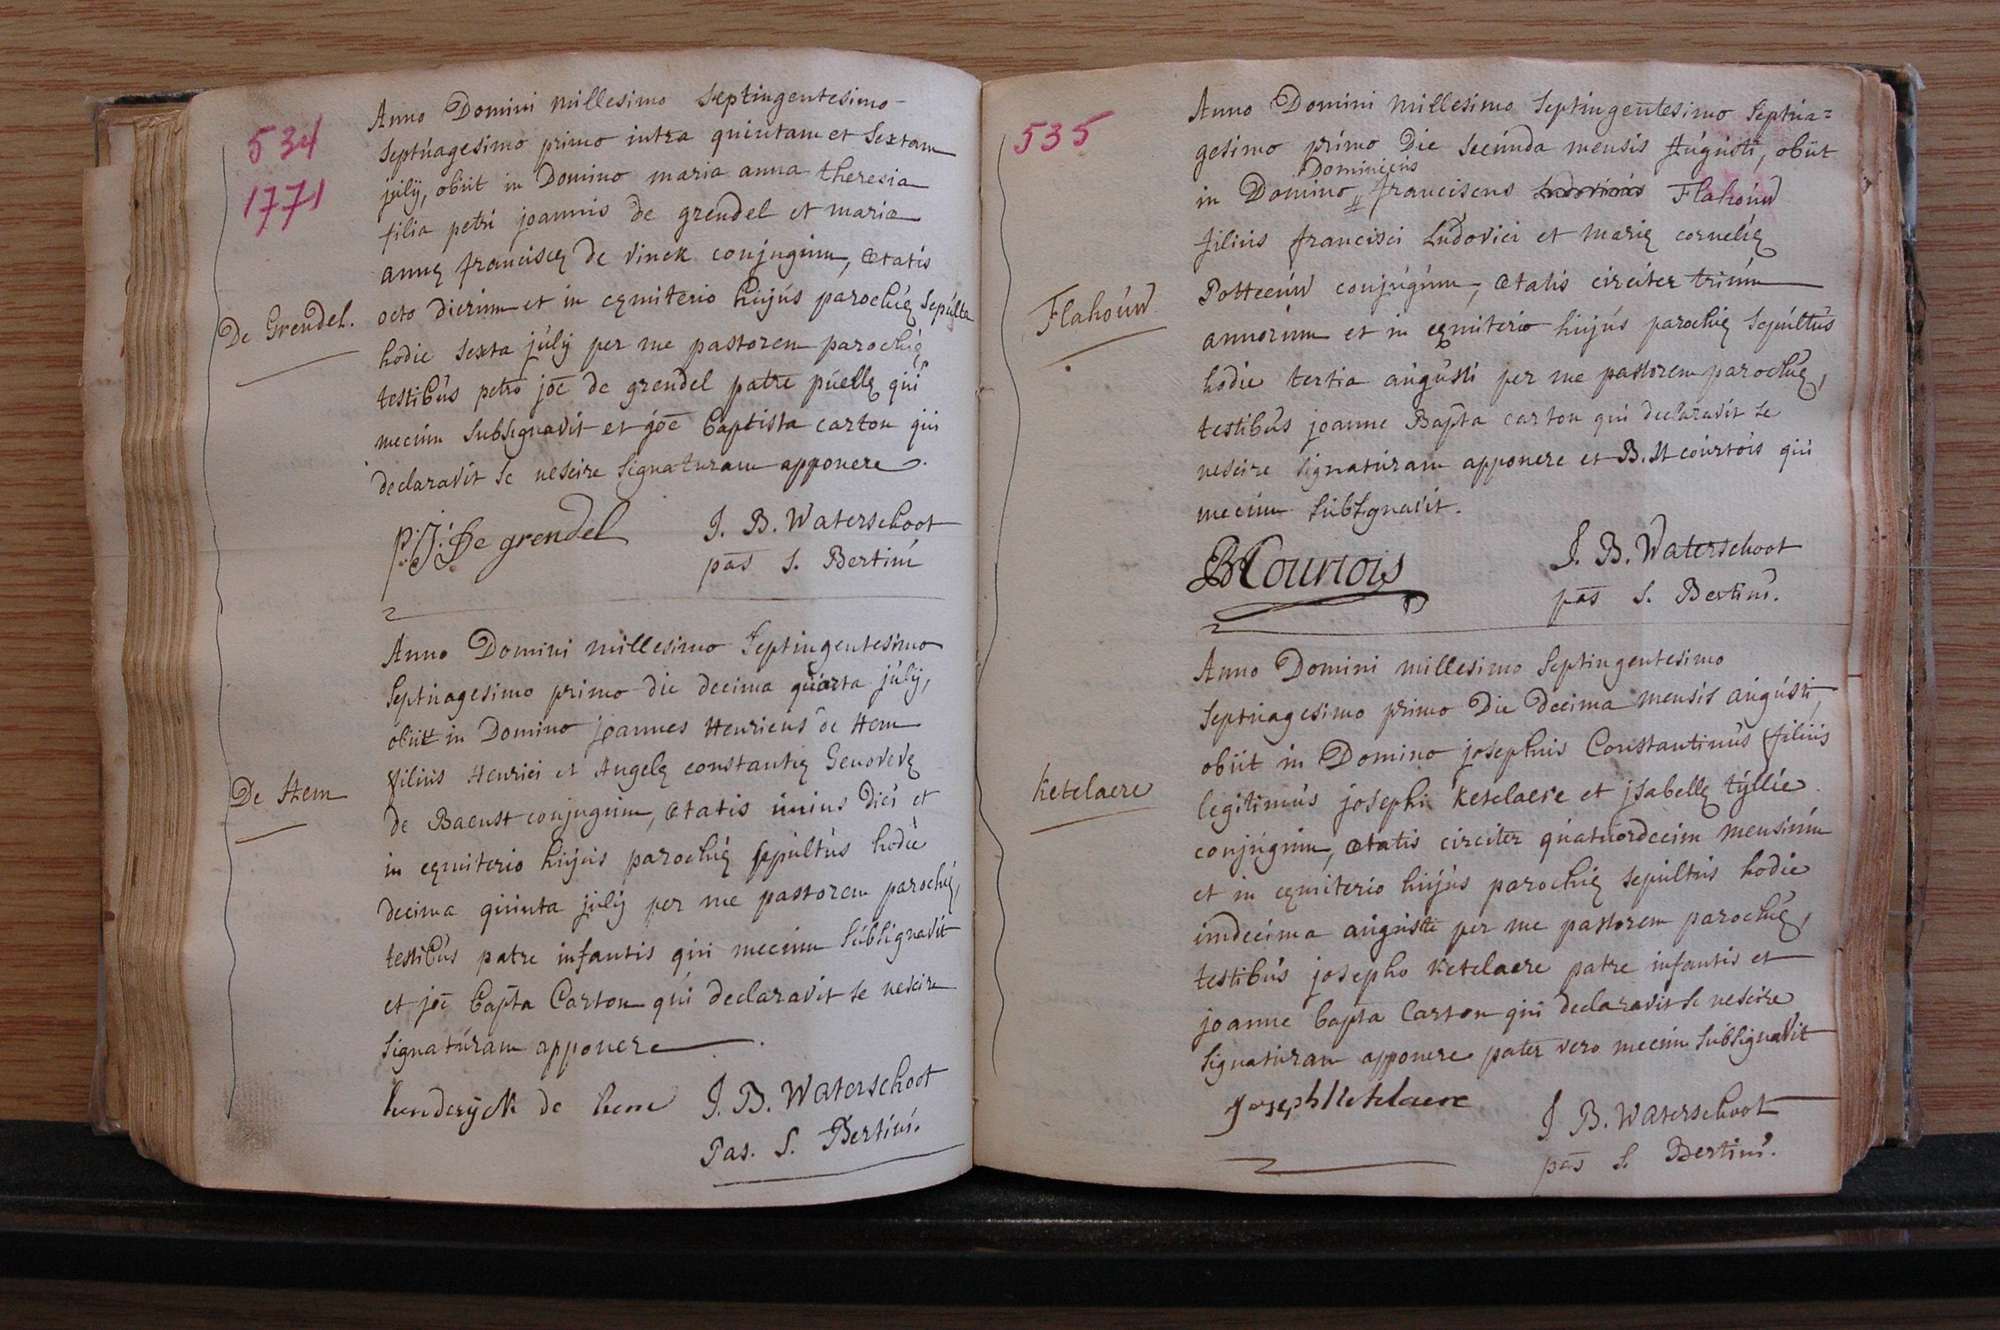 534
1771
Anno Domini millesimo septingentesimo-
septuagesimo primo intra quintam et sextam
julij, obiit in Domino maria anna theresia
filia petri joannis de grendel et maria
annę franciscę de vinck conjugum, ætatis
De Grendel.
octo dierum et in cęmiterio hujus parochię sepulta
hodie sexta julij per me pastorem parochię
testibus petro joe de grendel patre puellę qui
mecum subsignavit et joe baptista carton qui
declaravit se nescire signaturam apponere.
P:J: De grendel
J. B. Waterschoot
pas S. Bertini
Anno Domini millesimo septingentesimo
septuagesimo primo die decima quarta julij,
obiit in Domino joannes Henricus de Hem
filius Henrici et Angelę constantię Genovevę
De Hem
de Baenst conjugum, ætatis unius diei et
in cęmiterio hujus parochię sepultus hodie
decima quinta julij per me pastorem parochię,
testibus patre infantis qui mecum subsignavit
et joe bapta Carton qui declaravit se nescire
signaturam apponere.
henderyck de hem
J. B. Waterschoot
Pas. S. Bertini.
535
Anno Domini millesimo septingentesimo septua=
gesimo primo die secunda mensis Augusti, obiit
Dominicus
in Domino franciscus Ludovicus Flahouw
filius francisci Ludovici et marię cornelię
Flahouw
Potteeuw conjugum, ætatis circiter trium
annorum et in cęmiterio hujus parochię sepultus
hodie tertia augusti per me pastorem parochię,
testibus joanne Bapta carton qui declaravit se
nescire signaturam apponere et B. H courtois qui
mecum subsignavit.
BHCourtois
J. B. Waterschoot
pas S. Bertini.
Anno Domini millesimo septingentesimo
septuagesimo primo Die decima mensis augusti,
obiit in Domino josephus Constantinus filius
ketelaere
legitimus josephi ketelaere et jsabellę tyllie
conjugum, ætatis circiter quatuordecim mensium
et in cęmiterio hujus parochię sepultus hodie
undecima augusti per me pastorem parochię,
testibus josepho ketelaere patre infantis et
joanne bapta Carton qui declaravit se nescire
signaturam apponere pater vero mecum subsignavit
Joseph Ketelaere
J B. Waterschoot
pas S. Bertini.